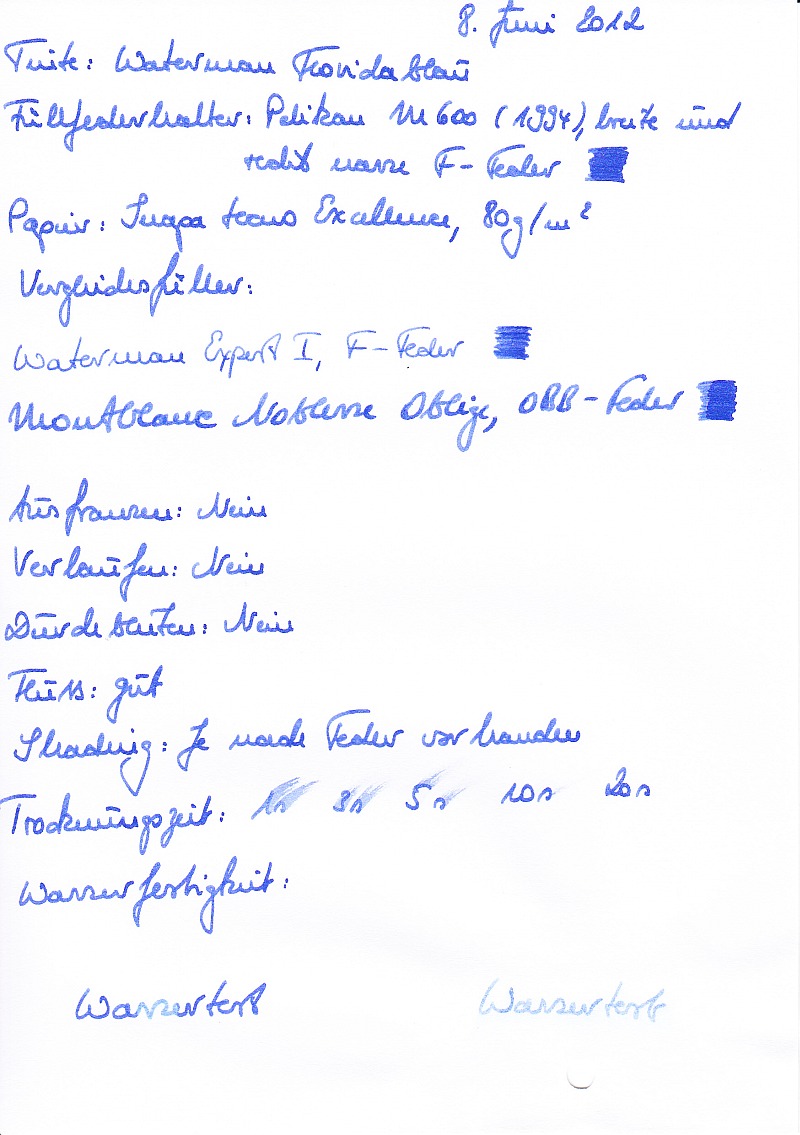 8. Juni 2012
Tinte: Waterman Floridablau
Füllfederhalter: Pelikan M600 (1994), breite und
recht nasse F-Feder
Papier: Inapa tecno Excellence, 80g/m²
Vergleichsfüller:
Waterman Expert I, F-Feder
Montblanc Noblesse Oblige, OBB-Feder
Ausfransen: Nein
Verlaufen: Nein
Durchbluten: Nein
Fluss: gut
Shading: Je nach Feder vorhanden
Trocknungszeit: 1s 3s 5s 10s 20s
Wasserfestigkeit:
Wassertest Wassertest